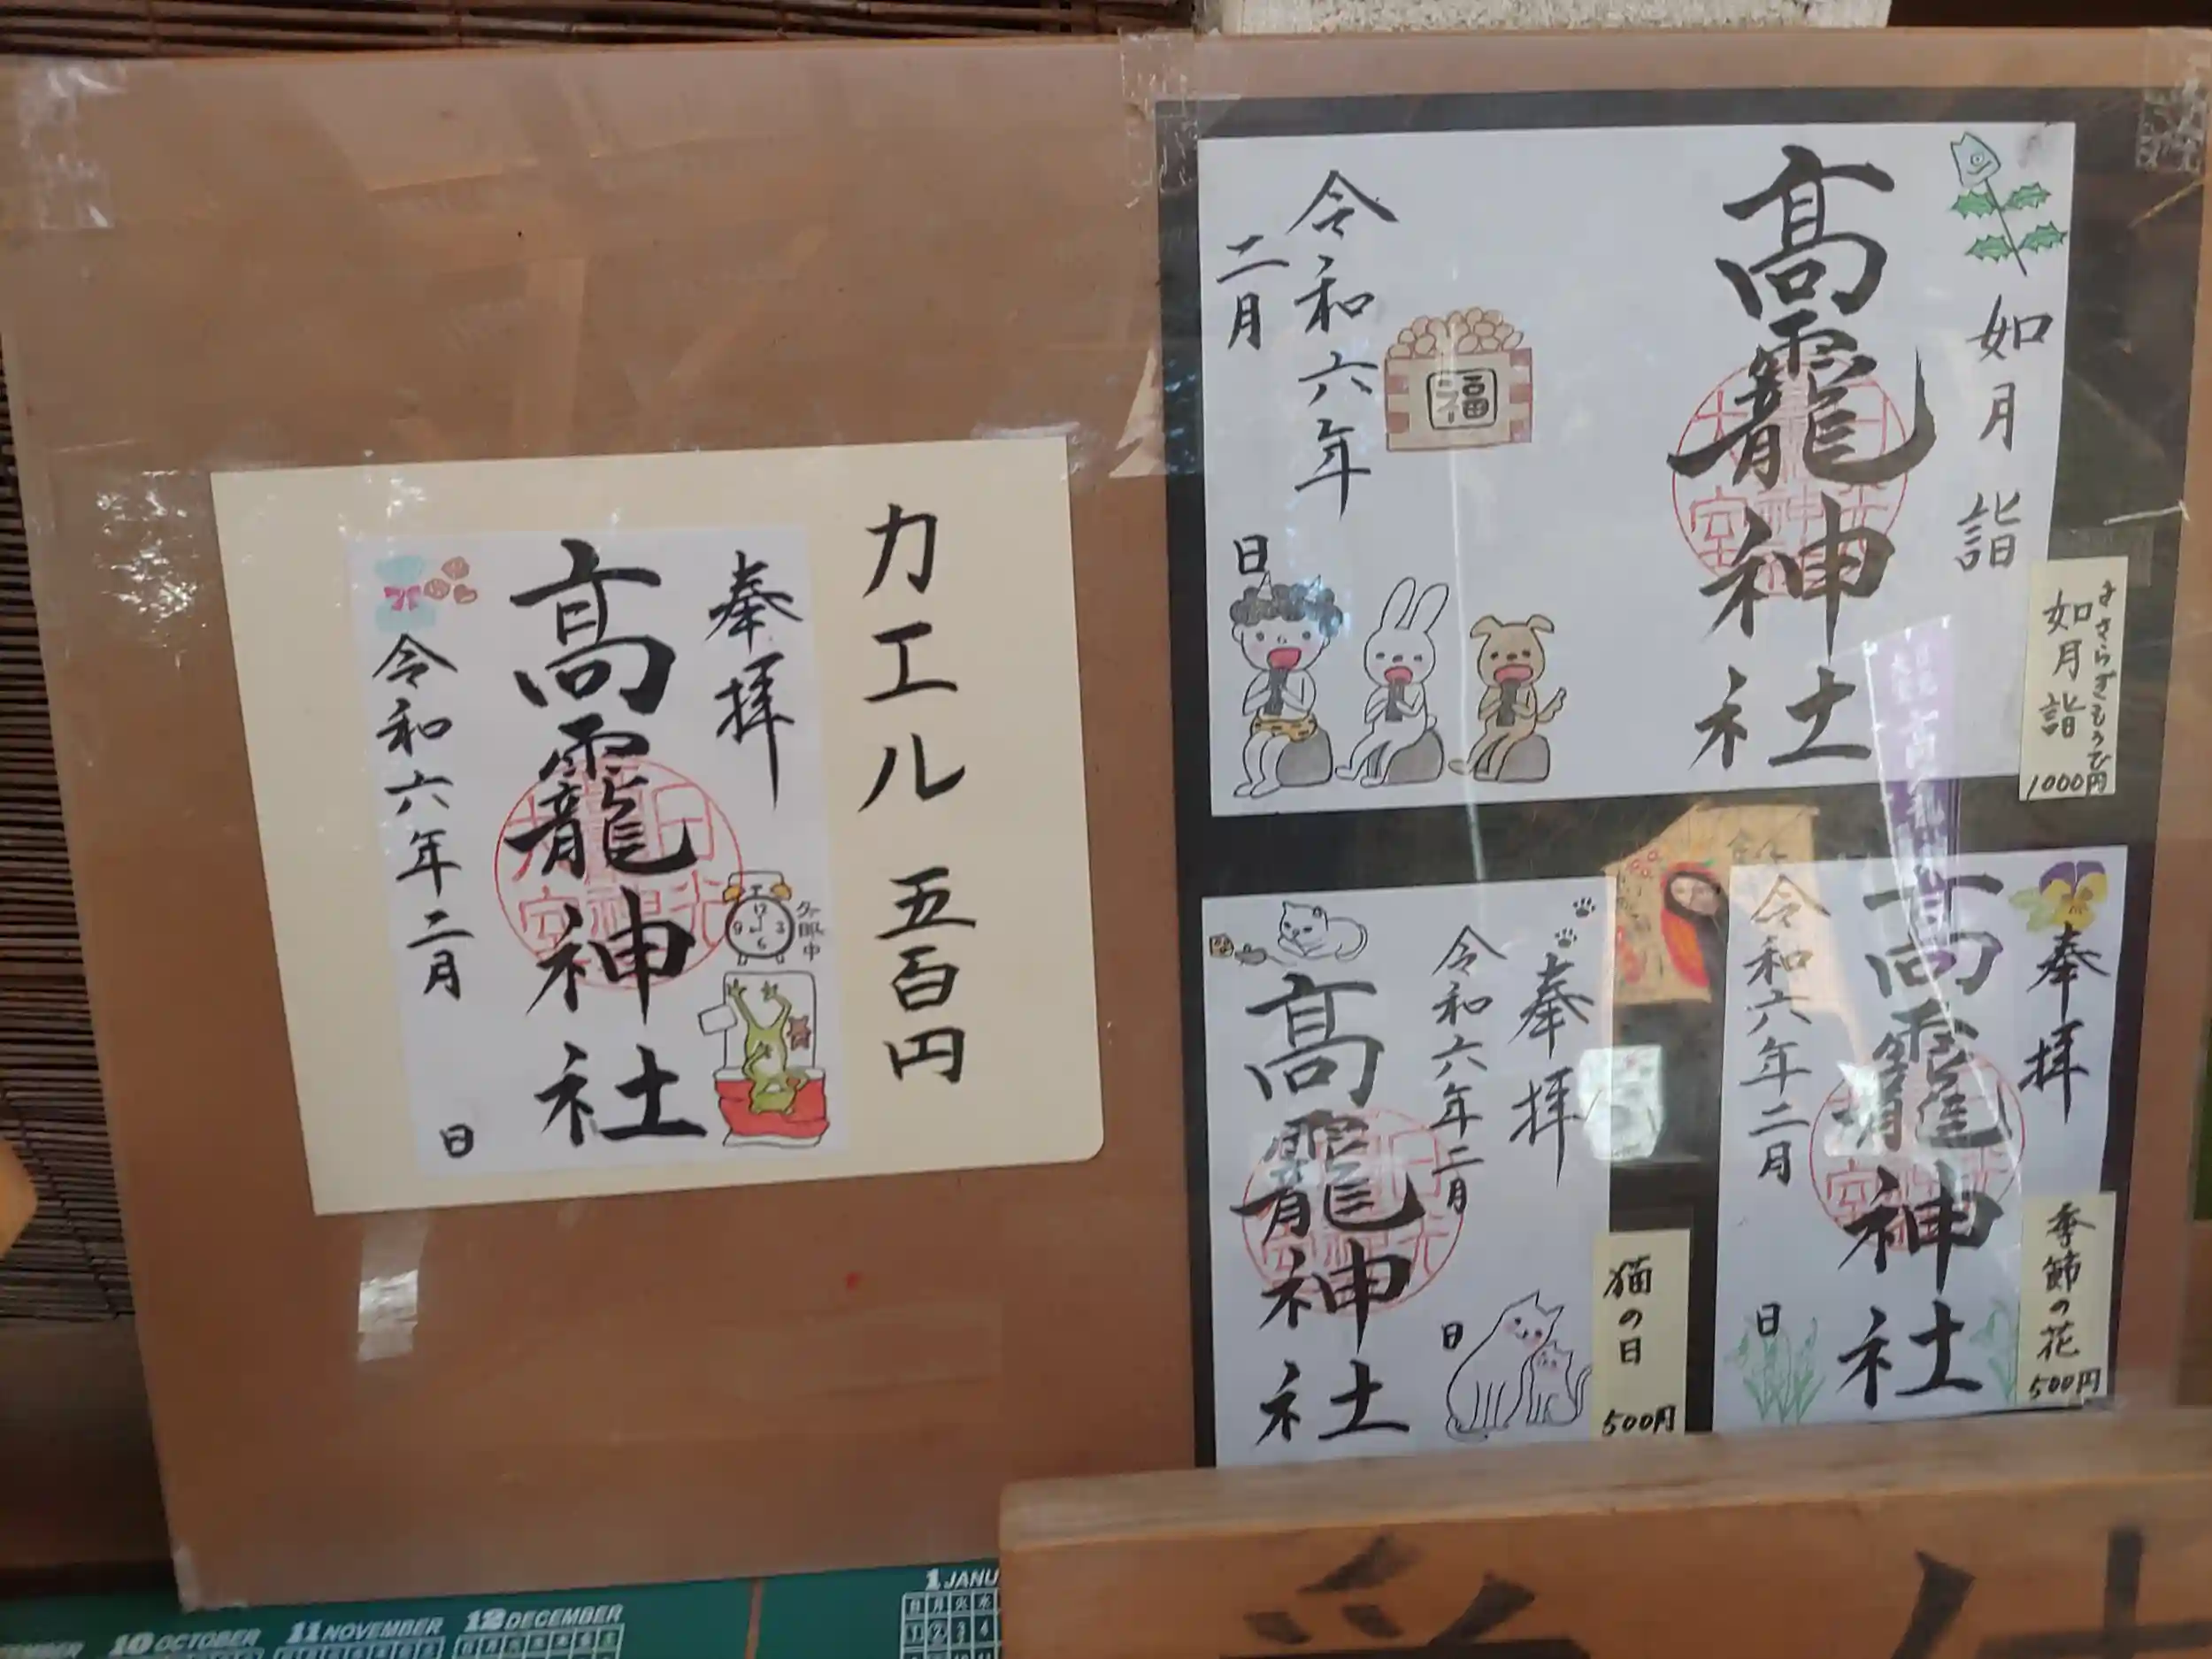 カエル 五百円
奉拝
高龗神社
令和六年二月
日
冬眠中
如月詣
高龗神社
福
令和六年
二月
日
きさらぎもうで
如月詣
1000円
奉拝
令和六年二月
日
高龗神社
猫の日
500円
奉拝
高龗神社
令和六年二月
日
季節の花
500円
10 OCTOBER
11 NOVEMBER
12 DECEMBER
1 JANU
日 月 火 水